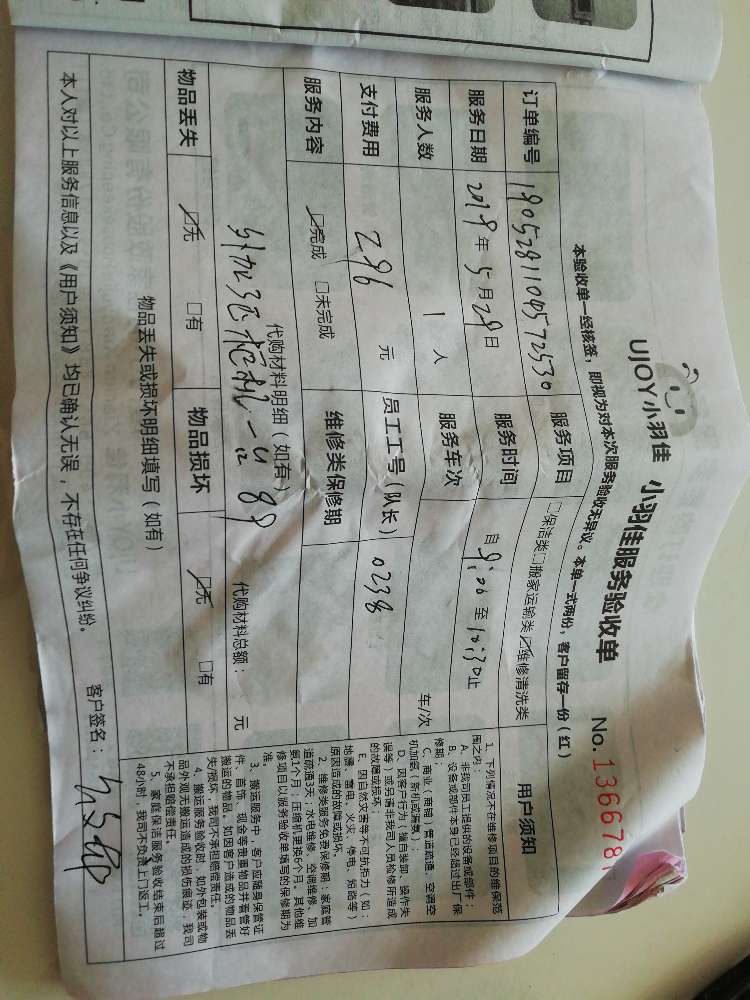 UJOY小羽佳 小羽佳服务验收单 No. 1366787
本验收单一经核签，即视为对本次服务验收无异议。本单一式两份，客户留存一份（红）
订单编号 1905281109572530 服务项目 □保洁类□搬家运输类☑维修清洗类
服务日期 2019年5月29日 服务时间 自9:00至10:30止
服务人数 1人 服务车次 车/次
支付费用 296元 员工工号（队长） 0238
服务内容 ☑完成 □未完成 维修类保修期
代购材料明细（如有）
一台 89 代购材料总额： 元
物品丢失 ☑无 □有 物品损坏 ☑无 □有
物品丢失或损坏明细填写（如有）
本人对以上服务信息以及《用户须知》均已确认无误，不存在任何争议纠纷。
客户签名：
用户须知
1、下列情况不在维修项目的维保范
围之内：
A、非我司员工提供的设备或部件；
B、设备或部件本身已经超过出厂保
修期；
C、商业（商铺）管道疏通、空调空
机加氨（新机或漏氨）；
D、因客户行为（擅自装卸、操作失
误等）或另请非我司人员检修所造成
的故障或损坏；
E、因自然灾害等不可抗拒力（如：
地震、雷电、火灾、停电、短路等）
原因造成的故障或损坏
2、维修类服务免费保修期：家庭管
道疏通3天；水电维修、空调维修、加
氨1个月；压缩机更换6个月。其他维
修项目以服务验收单填写的保修期为
准。
3、搬运服务中，客户应随身保管证
件、首饰、现金等贵重物品并看管好
搬运的物品。如因客户造成的物品丢
失/损坏，我司不承担赔偿责任。
4、搬运服务验收时，如外包装或物
品外观无搬运造成的损伤痕迹，我司
不承担赔偿责任。
5、家庭保洁服务验收结束后超过
48小时，我司不负责上门返工。